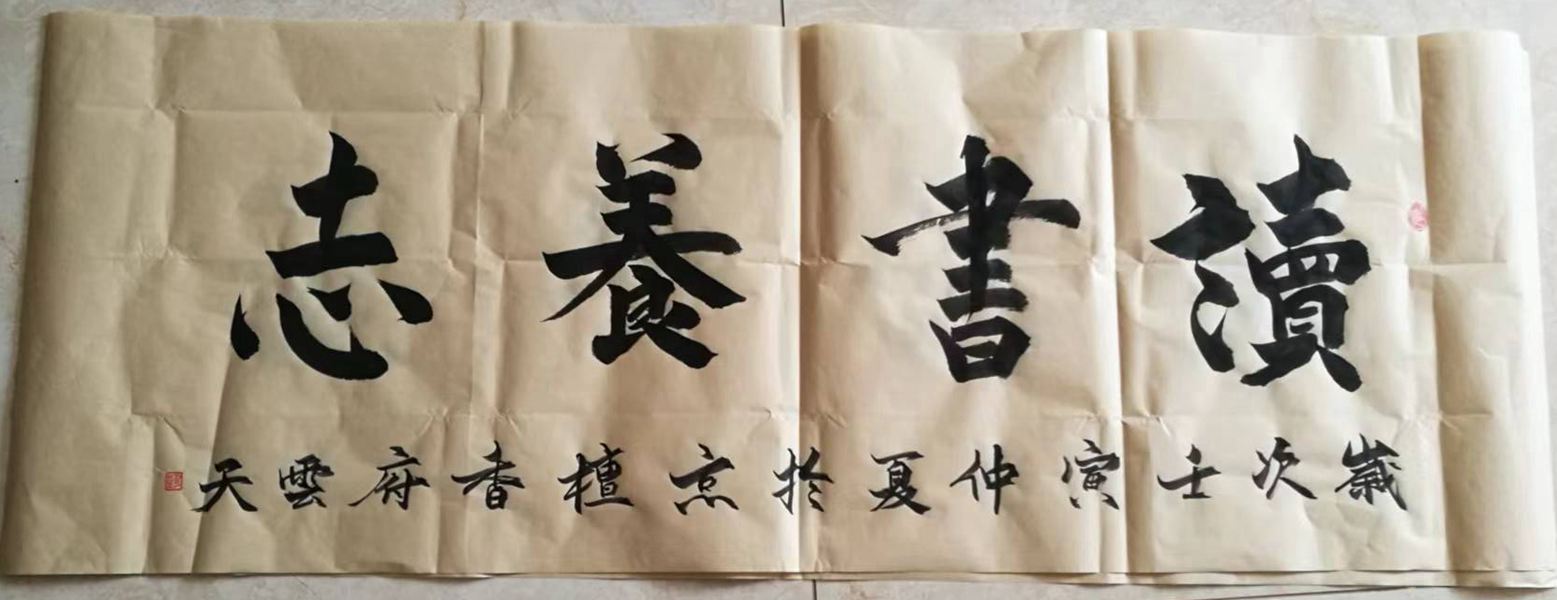 讀書養志
歲次壬寅仲夏於京檀香府雲天